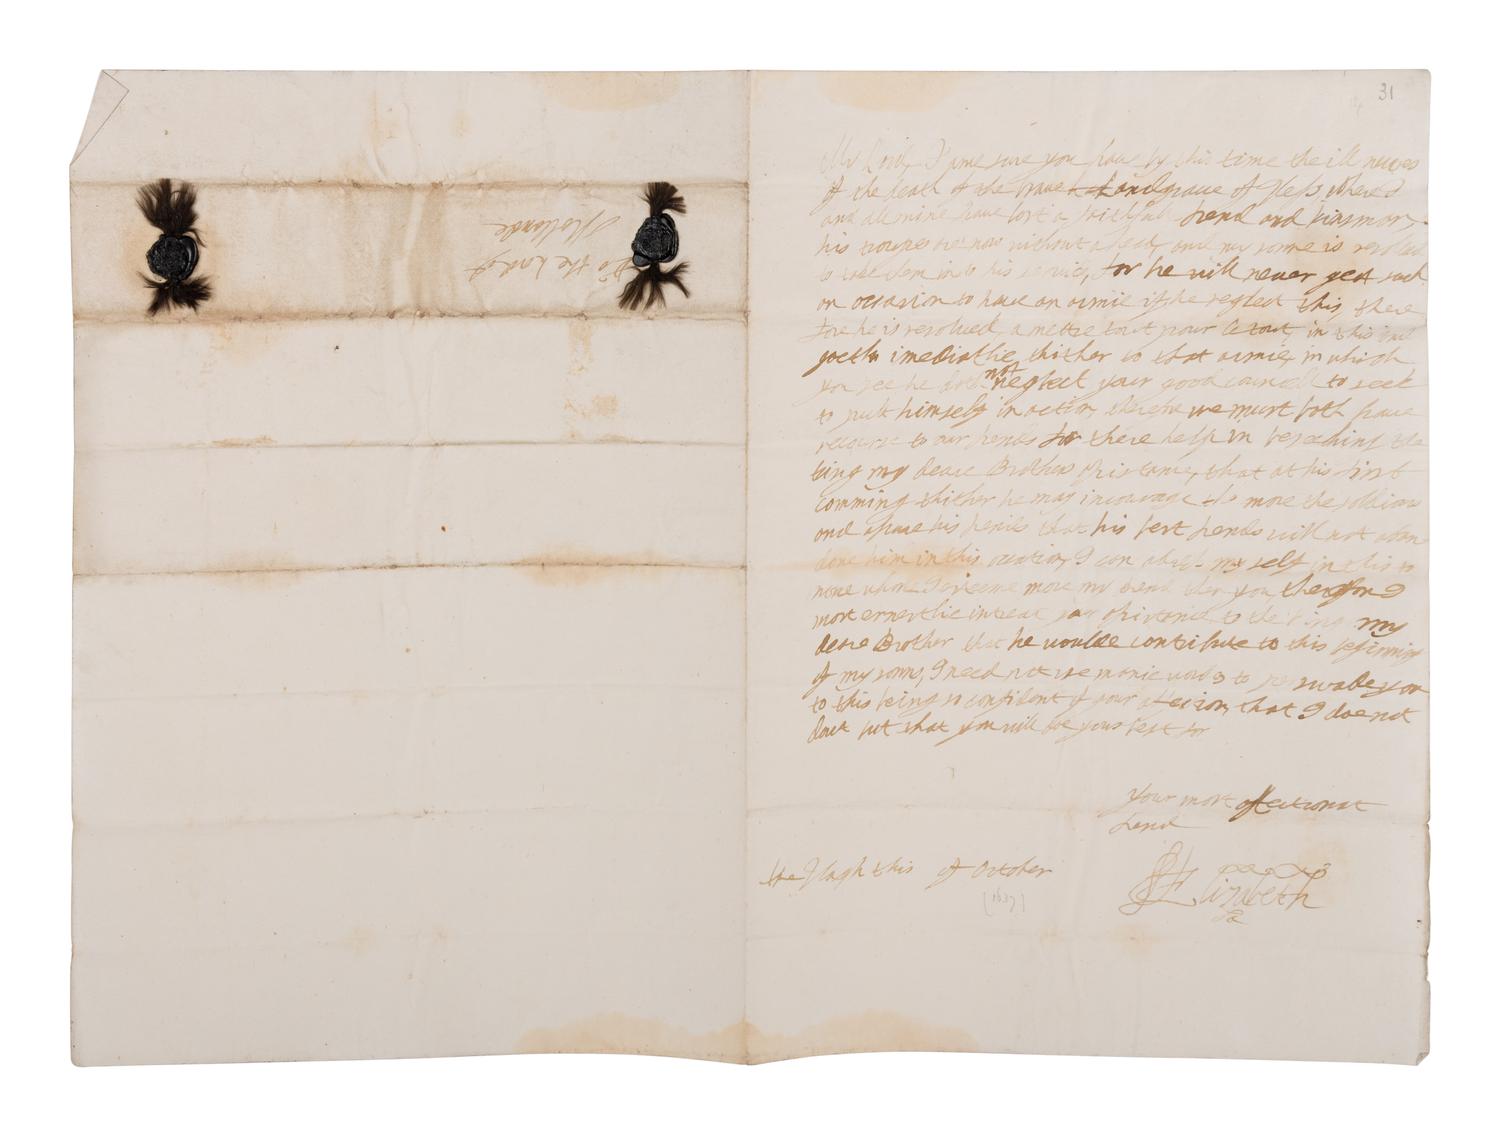 To the Lord of
Hollande
31
My Lord, I ame sure you have by this time the ill newes
of the death of the brave Landgrave of Hess, where I
and all mine have lost a faithfull frend and kinsman,
his troupes be now without a head, and my sonne is resolved
to take them in to his service, for he will never gett such
an occasion to have an armie if he neglect this, there
fore he is resolved a mettre tout pour le tout, in this and
goeth imediatlie thither to that armie, in which
you see he doth not neglect your good councell to seek
to putt himself in action, therefore we must both have
recourse to our frends for there help in beseaching the
king my deare Brother, that at his first
comming thither he may incourage the more the soldiers
and shewe his frends that his best frends will not aban
done him in this action, I can adress my self in this to
none whome I esteeme more my frend then you therefore I
most ernestlie intreat your assistance to the king my
deare Brother that he woulde contribute to this beginning
of my sonns, I need not use manie words to perswade you
to this being so confident of your affection, that I doe not
dout but that you will doe your best for
Your most affectionat
frend
Elizabeth
the Hagh this of October